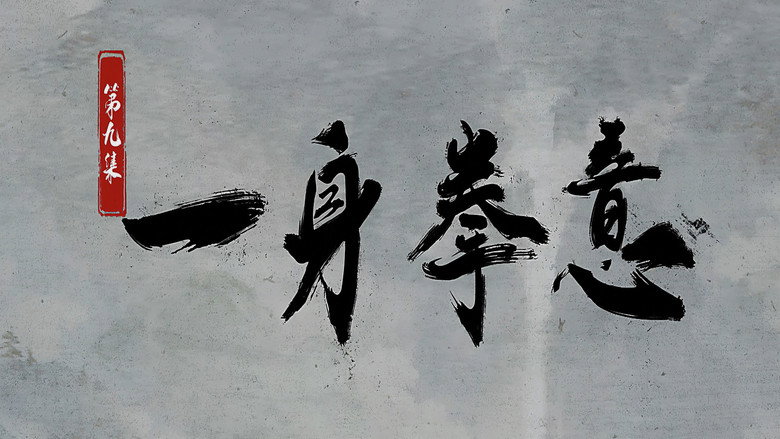 第九集
一身拳意